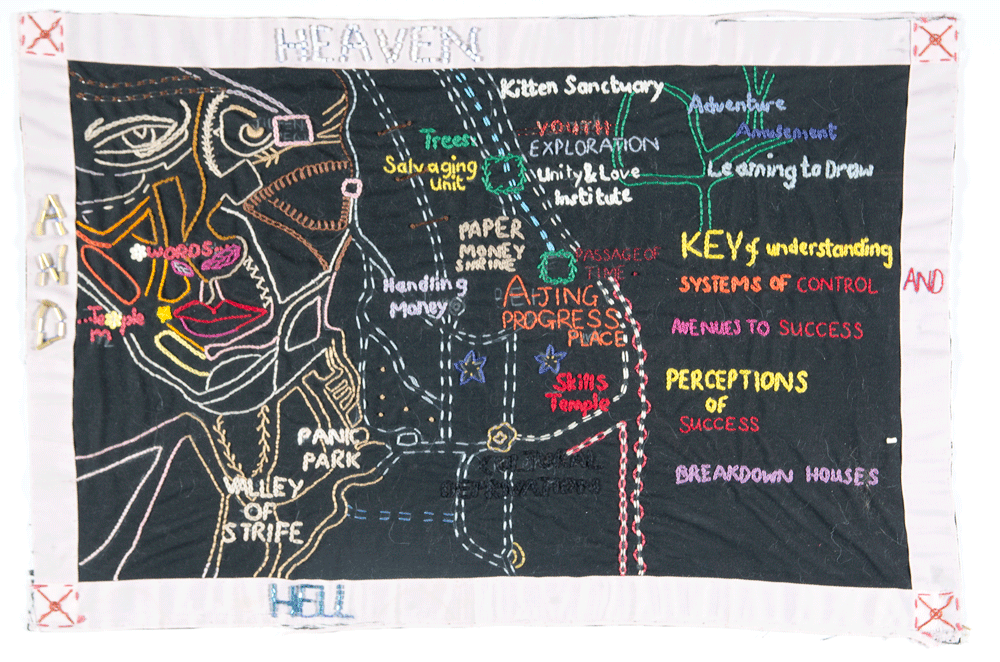 HEAVEN
Kitten Sanctuary
Adventure
Amusement
Learning to Draw
YOUTH
EXPLORATION
Unity & Love
Institute
Trees
Salvaging
Unit
PAPER
MONEY
SHRINE
PASSAGE OF
TIME
Handling
Money
AIJING
PROGRESS
PLACE
Skills
Temple
KEY of understanding
SYSTEMS OF CONTROL
AVENUES TO SUCCESS
PERCEPTIONS
OF
SUCCESS
BREAKDOWN HOUSES
AND
AND
WORDS
Temple
PANIC
PARK
VALLEY
OF
STRIFE
HELL